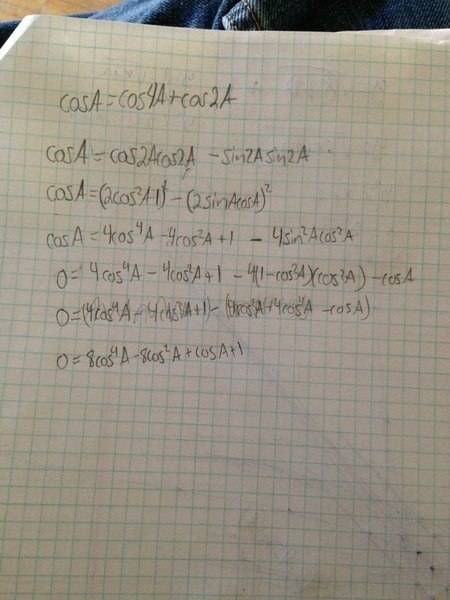 cosA=cos4A+cos2A
cosA=cos2Acos2A -sin2Asin2A
cosA=(2cos²A-1)² -(2sinAcosA)²
cosA=4cos⁴A-4cos²A+1 - 4sin²Acos²A
0=4cos⁴A-4cos²A+1 -4(1-cos²A)(cos²A) -cosA
0=(4cos⁴A-4cos²A+1)-(4cos²A+4cos⁴A -cosA)
0=8cos⁴A-8cos²A+cosA+1